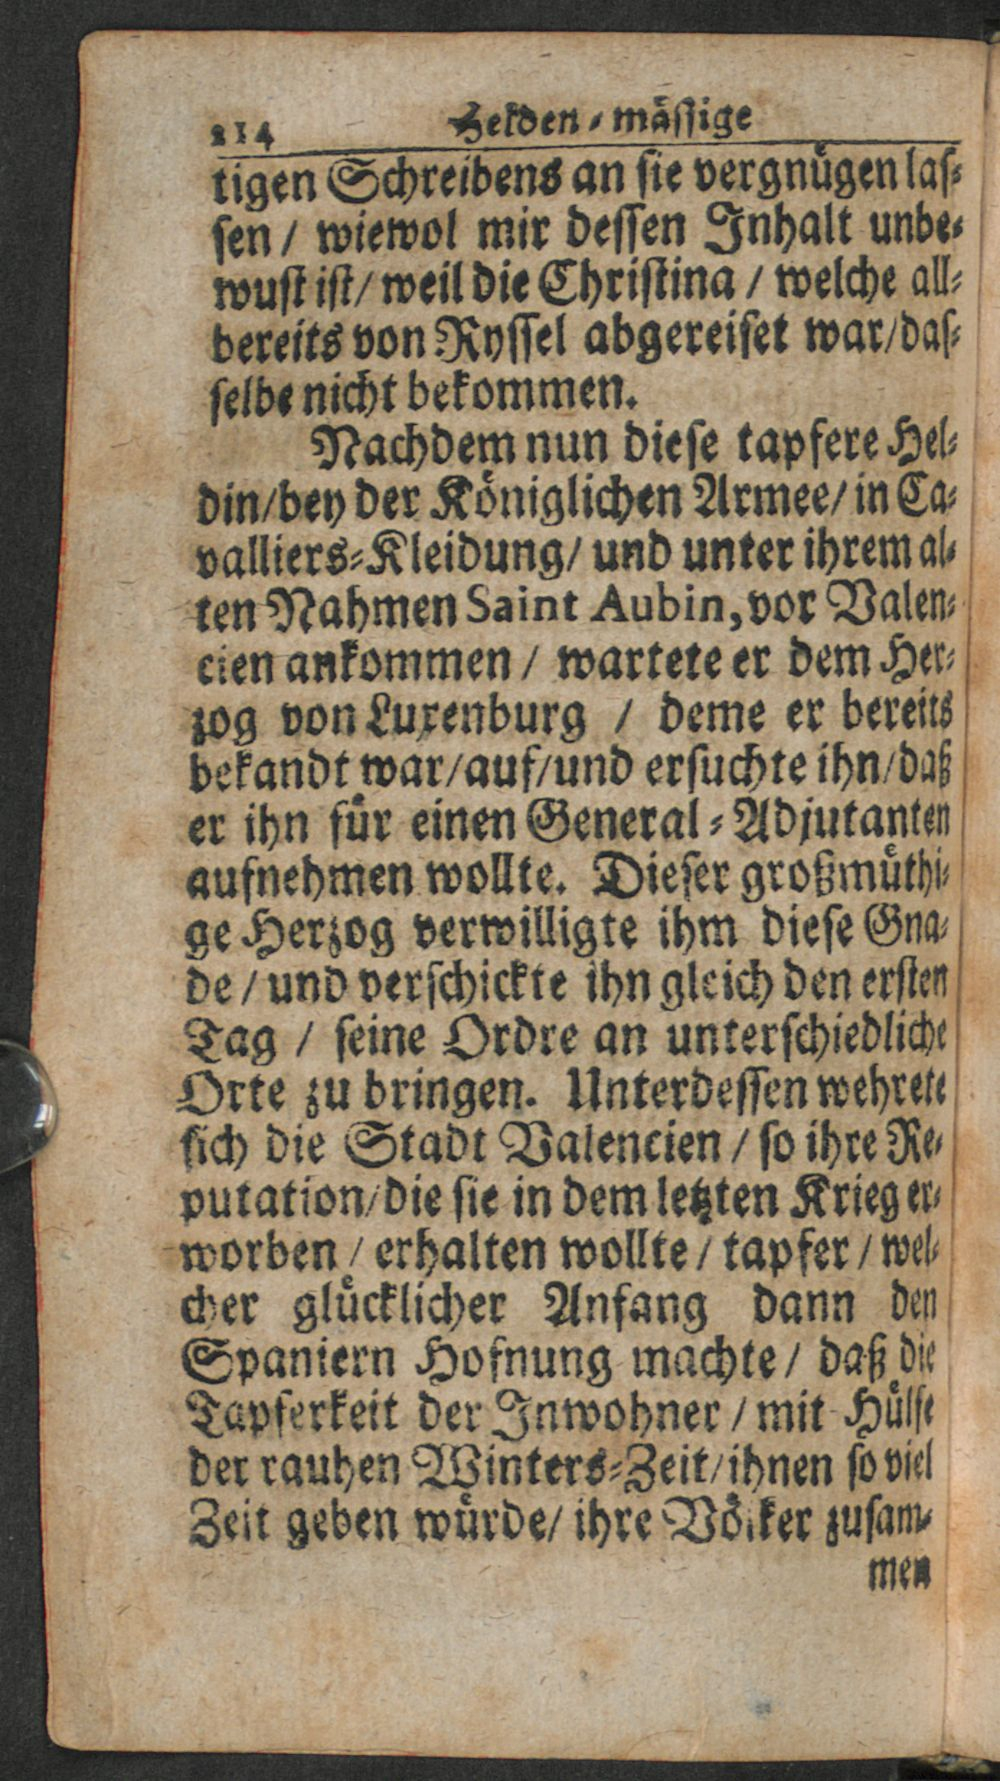 214 Helden-mässige
tigen Schreibens an sie vergnügen las-
sen / wiewol mir dessen Inhalt unbe-
wust ist / weil die Christina / welche all-
bereits von Ryssel abgereiset war / das-
selbe nicht bekommen.
Nachdem nun diese tapfere Hel-
din / bey der Königlichen Armee / in Ca-
valliers-Kleidung / und unter ihrem al-
ten Nahmen Saint Aubin, vor Valen-
cien ankommen / wartete er dem Her-
zog von Luxenburg / deme er bereits
bekandt war / auf / und ersuchte ihn / daß
er ihn für einen General-Adjutanten
aufnehmen wollte. Dieser großmüthi-
ge Herzog verwilligte ihm diese Gna-
de / und verschickte ihn gleich den ersten
Tag / seine Ordre an unterschiedliche
Orte zu bringen. Unterdessen wehrete
sich die Stadt Valencien / so ihre Re-
putation / die sie in dem letzten Krieg er-
worben / erhalten wollte / tapfer / wel-
cher glücklicher Anfang dann den
Spaniern Hofnung machte / daß die
Tapferkeit der Inwohner / mit Hülfe
der rauhen Winters-Zeit / ihnen so viel
Zeit geben würde / ihre Völker zusam-
men